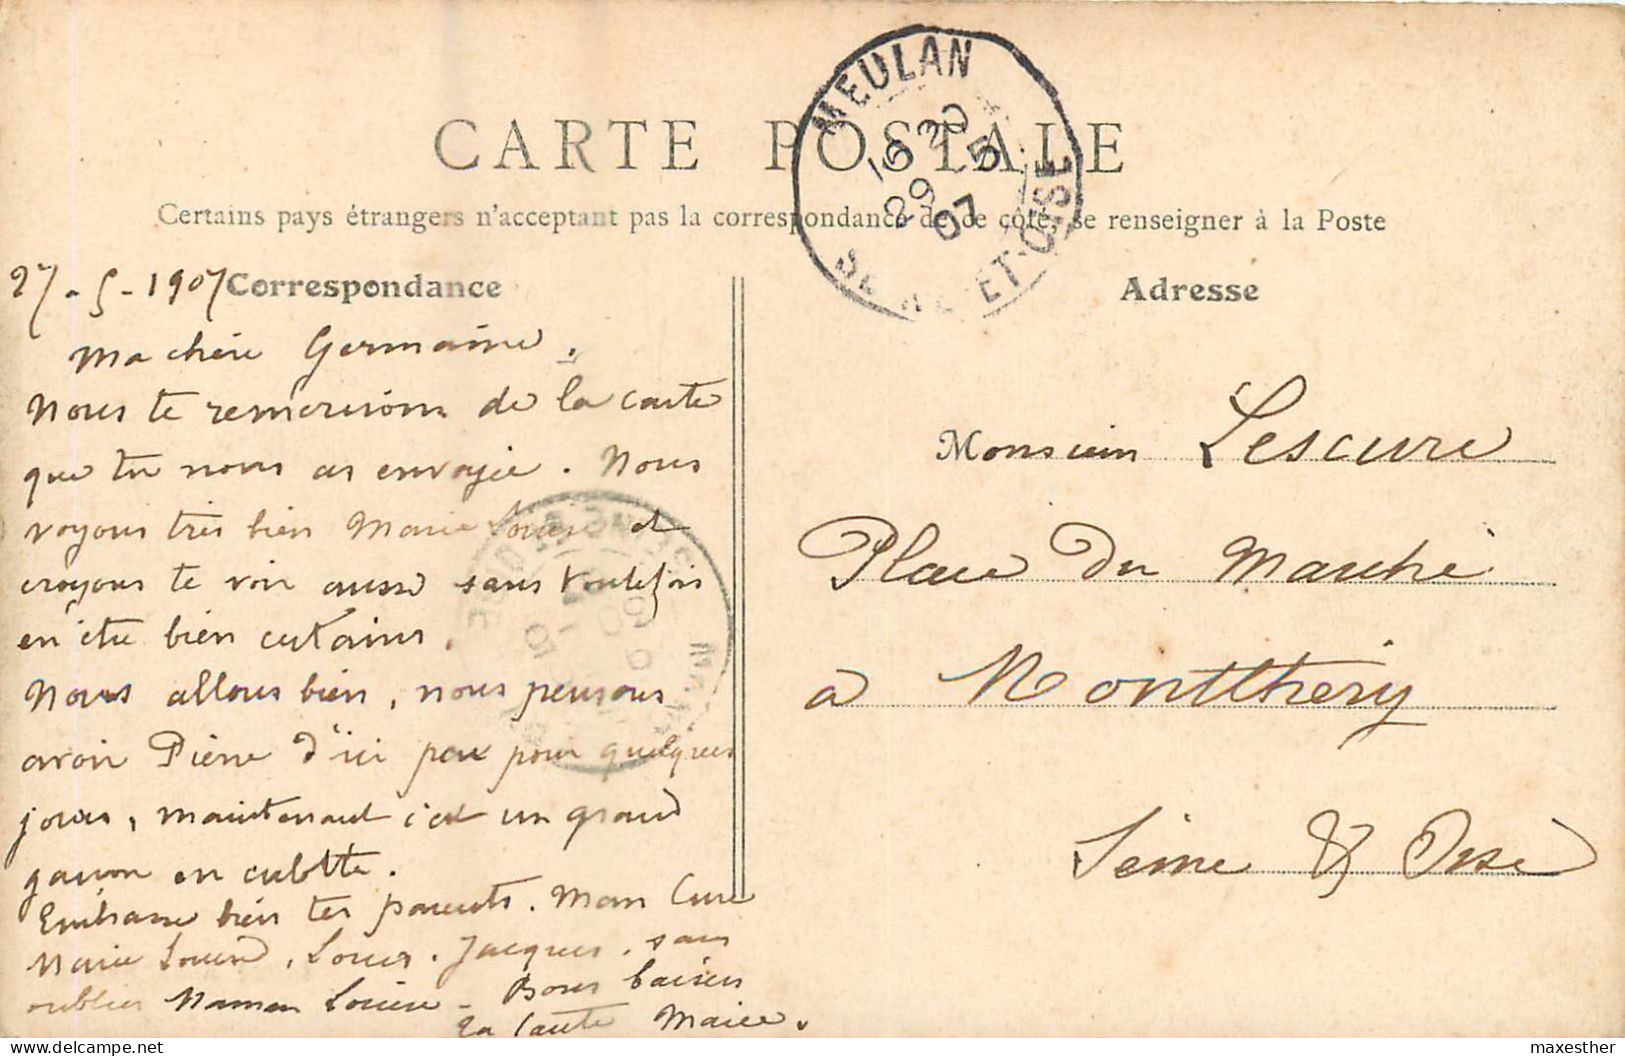 CARTE POSTALE
Certains pays étrangers n'acceptant pas la correspondance de ce côté, se renseigner à la Poste
MEULAN
16 30
29 5
07
SEINE-ET-OISE
27-5-1907 Correspondance
Ma chère Germaine.
Nous te remercions de la carte
que tu nous as envoyée. Nous
voyons très bien Marie Louise et
croyons te voir aussi sans toutefois
en être bien certains.
Nous allons bien, nous pensons
avoir Pierre d'ici peu pour quelques
jours, maintenant c'est un grand
garçon en culotte.
Embrasse bien tes parents. Mon
Marie Louise, Louis, Jacques, sans
oublier Maman Louise - Bons baisers
Ta Tante Marie.
Adresse
Monsieur Lescure
Place du Marché
à Montlhéry
Seine & Oise
maxesther